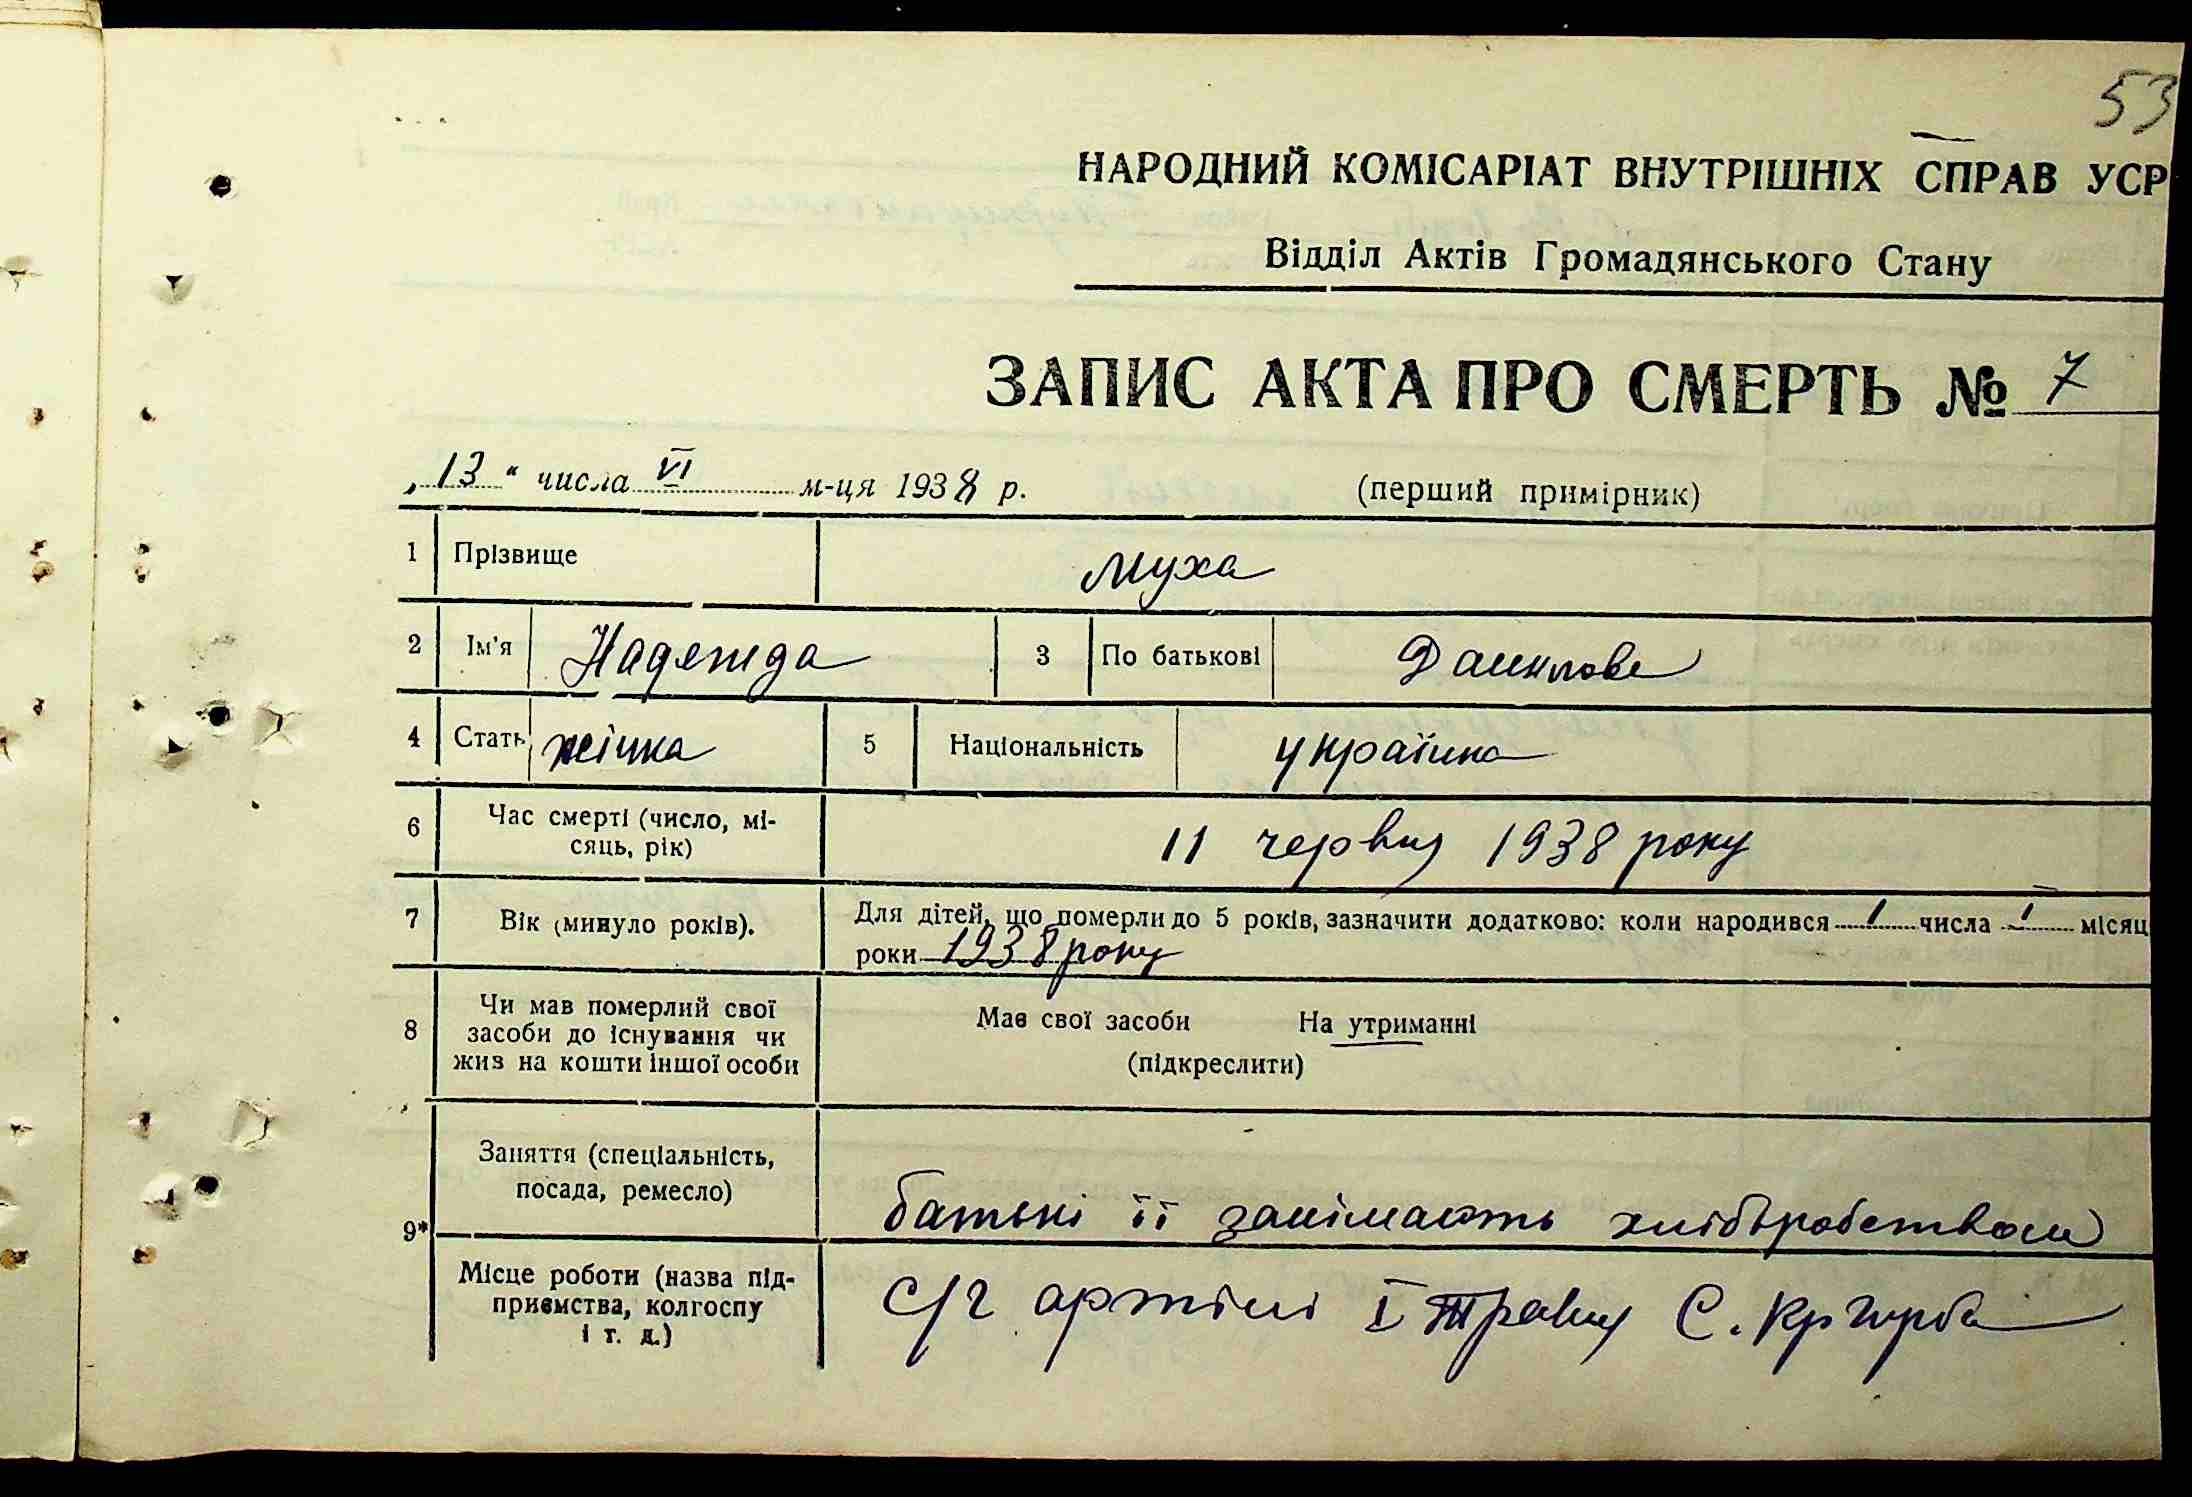 53
НАРОДНИЙ КОМІСАРІАТ ВНУТРІШНІХ СПРАВ УСР
Відділ Актів Громадянського Стану
ЗАПИС АКТА ПРО СМЕРТЬ № 7
„13" числа VI м-ця 1938 р. (перший примірник)
1 Прізвище Муха
2 Ім'я Надежда 3 По батькові Данилове
4 Стать жінка 5 Національність українка
6 Час смерті (число, мі-
сяць, рік) 11 червня 1938 року
7 Вік (минуло років). Для дітей, що померли до 5 років, зазначити додатково: коли народився 1 числа I місяц
роки 1938 року
8 Чи мав померлий свої
засоби до існування чи
жив на кошти іншої особи
Мав свої засоби На утриманні
(підкреслити)
9*
Заняття (спеціальність,
посада, ремесло) батькі її занімають хлібъробством
Місце роботи (назва під-
приємства, колгоспу
і т. д.) с/г артілі I Травня С.